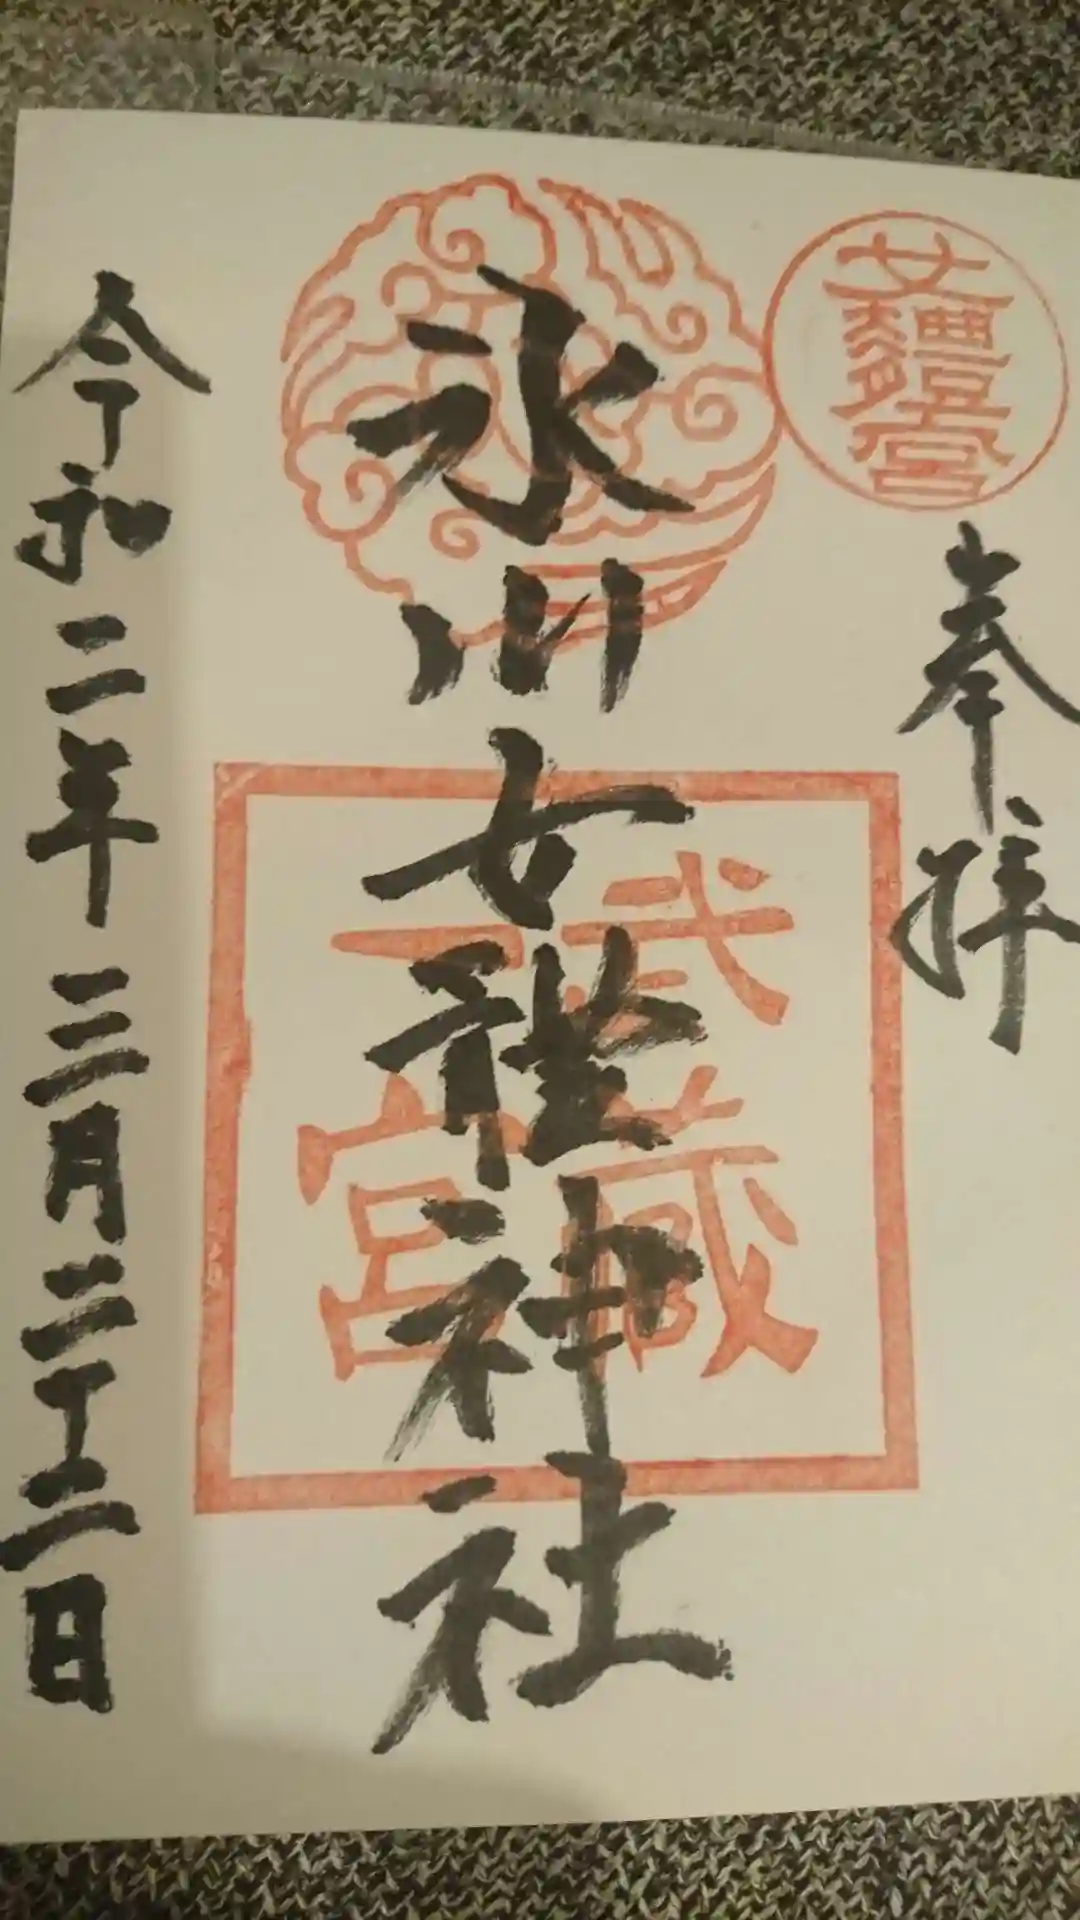 女體宮
奉拝
氷川女體神社
武蔵
一宮
令和二年三月二十三日